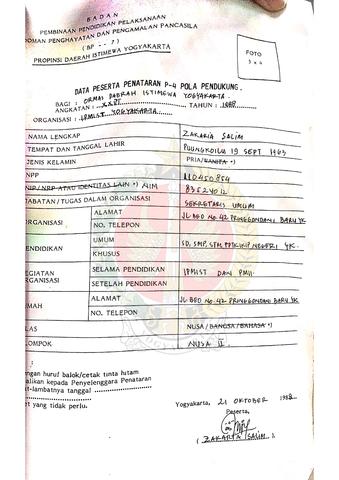 BADAN
PEMBINAAN PENDIDIKAN PELAKSANAAN
DOMAN PENGHAYATAN DAN PENGAMALAN PANCASILA
(BP -- 7)
PROPINSI DAERAH ISTIMEWA YOGYAKARTA
FOTO
3 x 4
DATA PESERTA PENATARAN P-4 POLA PENDUKUNG.
BAGI : ORMAS DAERAH ISTIMEWA YOGYAKARTA.
ANGKATAN : XXVI TAHUN : 1988
ORGANISASI : IPMIST YOGYAKARTA
NAMA LENGKAP ZAKARIA SALIM
TEMPAT DAN TANGGAL LAHIR 19 SEPT 1963
JENIS KELAMIN PRIA/WANITA *)
NPP 110450854
NIP/NRP ATAU IDENTITAS LAIN *) NIM 83524012
JABATAN/TUGAS DALAM ORGANISASI SEKRETARIS UMUM
ORGANISASI ALAMAT JL BEO No. 42 PRINGGONDANI BARU YK
NO. TELEPON
PENDIDIKAN UMUM SD, SMP, STM, NEGERI YK.
KHUSUS
KEGIATAN ORGANISASI SELAMA PENDIDIKAN IPMIST DAN PMII
SETELAH PENDIDIKAN
RUMAH ALAMAT JL BEO No. 42 PRINGGONDANI BARU YK
NO. TELEPON
KELAS NUSA/BANGSA/BAHASA *)
KELOMPOK NUSA II.
dengan huruf balok/cetak tinta hitam
balikan kepada Penyelenggara Penataran
t-lambatnya tanggal
et yang tidak perlu.
Yogyakarta, 21 OKTOBER 1988
Peserta,
( ZAKARIA SALIM ).